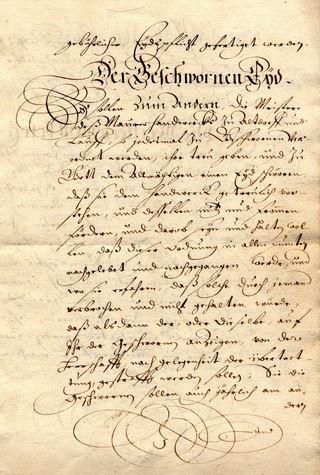 gebührlicher Eydspflicht gefertiget werden.
Der Geschwornen Eyd.
Es sollen Zum Andern, die Meister
deß Maurer handwercks zu Altdorff und
Lauff, so jedesmal zu Geschwornen ver
ordnet werden, ihr treu geben, und zu
Gott dem Allmächtigen einen Eyd schwören
daß sie dem handwerck getreulich vor
stehen, und desselben nutz und frommen
fördern, und darob seyn und halten wol
len, daß dieser Ordnung in allen puncten
nachgelebet und nachgegangen werde, und
wo sie erfahren, daß solche durch jemand
verbrochen und nicht gehalten würde,
daß alsdann der, oder dieselbe, auf
Ihr der Geschwornen anzeigen, von der
Herrschafft, nach gelegenheit der
tung, gestrafft werden sollen; Sie die
Geschwornen sollen auch jährlich am an
dern